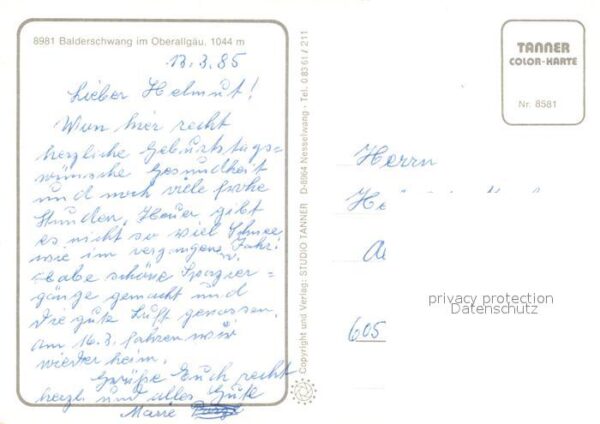 8981 Balderschwang im Oberallgäu. 1044 m
13.3.85
Lieber Helmut!
Von hier recht
herzliche Geburtstags-
wünsche Gesundheit
und noch viele frohe
Stunden. Heuer gibt
es nicht so viel Schnee
wie im vergangenen Jahr!
Habe schöne Spazier-
gänge gemacht und
die gute Luft genossen.
Am 16.3. fahren wir
wieder heim.
Grüße Euch recht
herzl. und alles Gute
Marie
Copyright und Verlag: STUDIO TANNER D-8964 Nesselwang · Tel. 0 83 61 / 211
TANNER
COLOR-KARTE
Nr. 8581
Herrn
605
privacy protection
Datenschutz